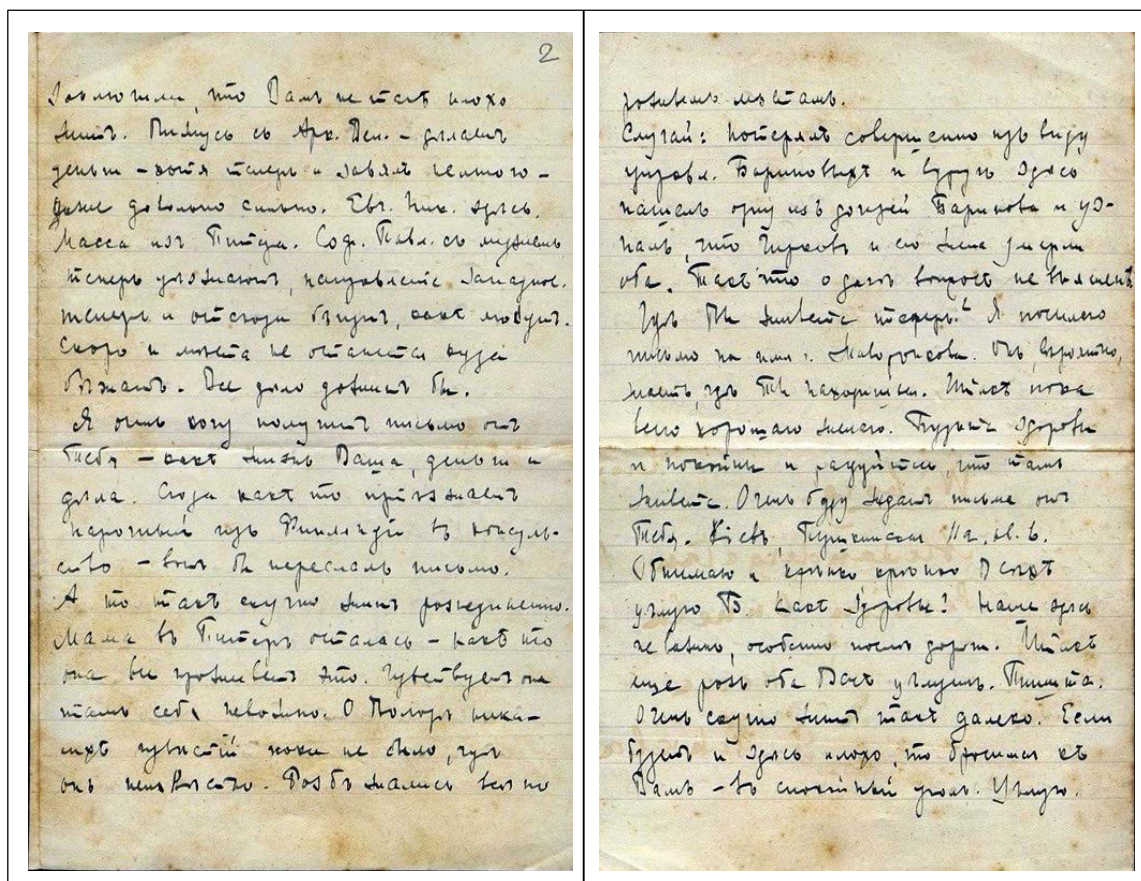 2
заключили, что Вамъ не такъ плохо
жить. Пимусь съ Арк. Вен. – дѣлаетъ
деньги – хотя теперь и завялъ немного –
даже довольно сильно. Евг. Ник. здѣсь.
Масса изъ Питера. Соф. Павл. съ мужемъ
теперь уѣзжаютъ, направленіе западное.
теперь и отсюда бѣгутъ, какъ могутъ.
Скоро и мѣста не останется куда
бѣжать. Все дѣло дожить бы.
Я очень хочу получить письмо отъ
Тебя – какъ жизнь Ваша, деньги и
дѣла. Сюда какъ то пріѣзжаетъ
нарочный изъ Финляндіи въ консуль-
ство – вотъ бы переслалъ письмо.
А то такъ скучно жить разъединенно.
Мама въ Питерѣ осталась – какъ то
она все проживетъ это. Чувствуетъ она
тамъ себя неважно. О Володѣ ника-
кихъ извѣстій пока не было, гдѣ
онъ неизвѣстно. Разбѣжались всѣ по
разнымъ мѣстамъ.
Случай: потерялъ совершенно изъ виду
управл. Бариновыхъ и вдругъ здѣсь
нашелъ одну изъ дочерей Баринова и уз-
налъ, что и его жена умерли
оба. Такъ что о дачѣ вопросъ не выясненъ.
Гдѣ Вы живете теперь? Я посылаю
письмо на имя. Онъ, вѣроятно,
знаетъ, гдѣ Ты находишься. Итакъ пока
всего хорошаго желаю. Будьте здоровы
и покойны и радуйтесь, что тамъ
живете. Очень буду ждать письма отъ
Тебя. Кіевъ, Пушкинская 11а, кв. 6.
Обнимаю и крѣпко крѣпко Васъ
цѣлую. Какъ здоровье? Наше здѣсь
неважно, особенно послѣ дороги. Итакъ
еще разъ оба Васъ цѣлуемъ. Пишите.
Очень скучно жить такъ далеко. Если
будетъ и здѣсь плохо, то бросимся къ
Вамъ – въ спокойный уголъ. Цѣлую.